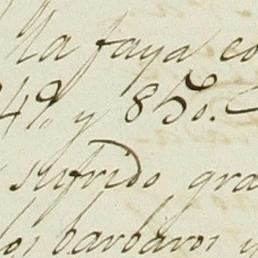 la faya co
49, y 850.
sufrido gra
los barbaros y